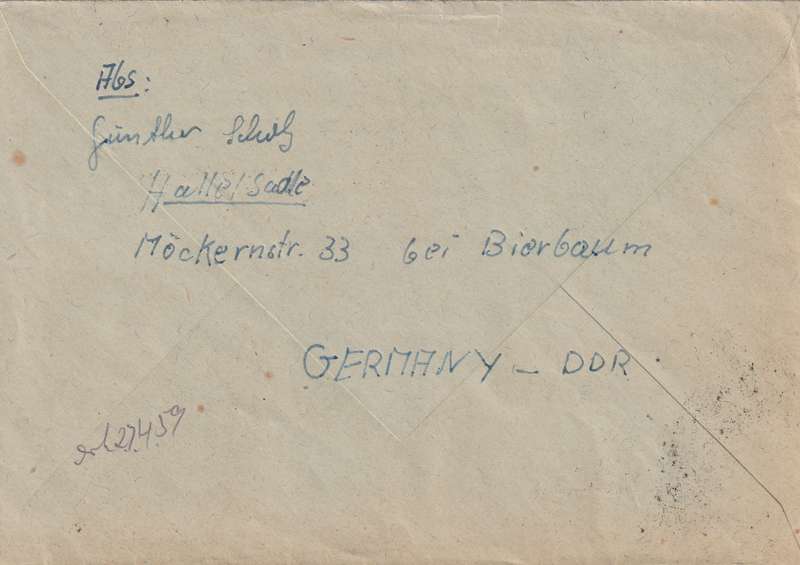 Abs:
Günther Scholz
Halle/Saale
Möckernstr. 33 bei Bierbaum
GERMANY – DDR
27.4.59